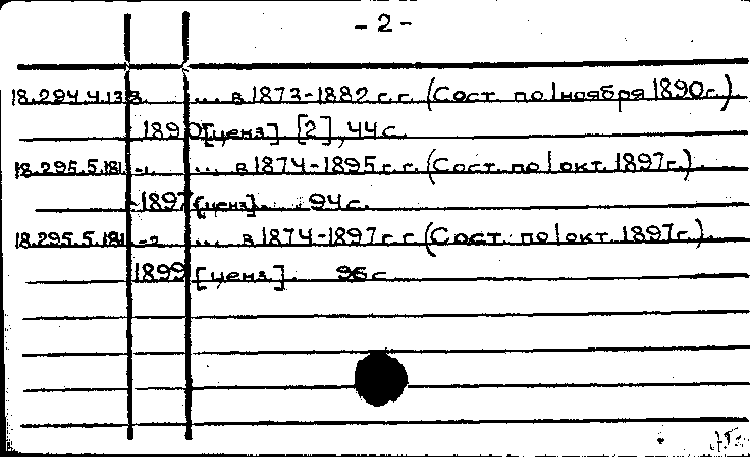 - 2 -
18.294.4.138. ... в 1873-1882 г.г. (Сост. по 1 ноября 1890г.)
1890 [ценз]. [2], 44 с.
18.295.5.181 -1. ... в 1874-1895 г.г. (Сост. по 1 окт. 1897г.).
1897 [ценз]. 94 с.
18.295.5.181 -2 ... в 1874-1897 г.г. (Сост. по 1 окт. 1897г.).
1899 [ценз]. 96 с